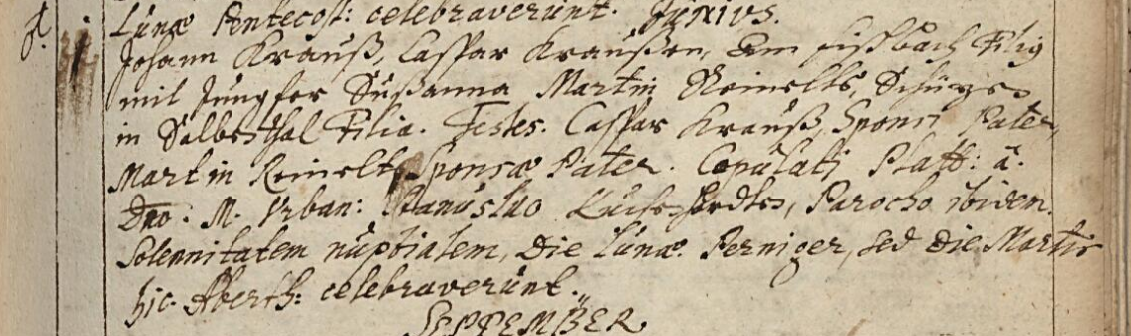 Lunæ Pentecost: celebraverunt. Junius.
Johann Krauß, Caspar Kraußen, am Fischbach Filig
mit Jungfer Sußanna Martin Reinelts,
in Salbesthal Filia. Testes. Caspar Krauß, Sponsi Pater,
Martin Reinelt, Sponsæ Pater. Copulati Platt: â.
Dno. M. Urban: Stanislao Parocho ibidem.
Solennitatem nuptialem, Die Lunæ. Perniger, sed die Martis
hic. Aberth: celebraverunt.
SEPTEMBER